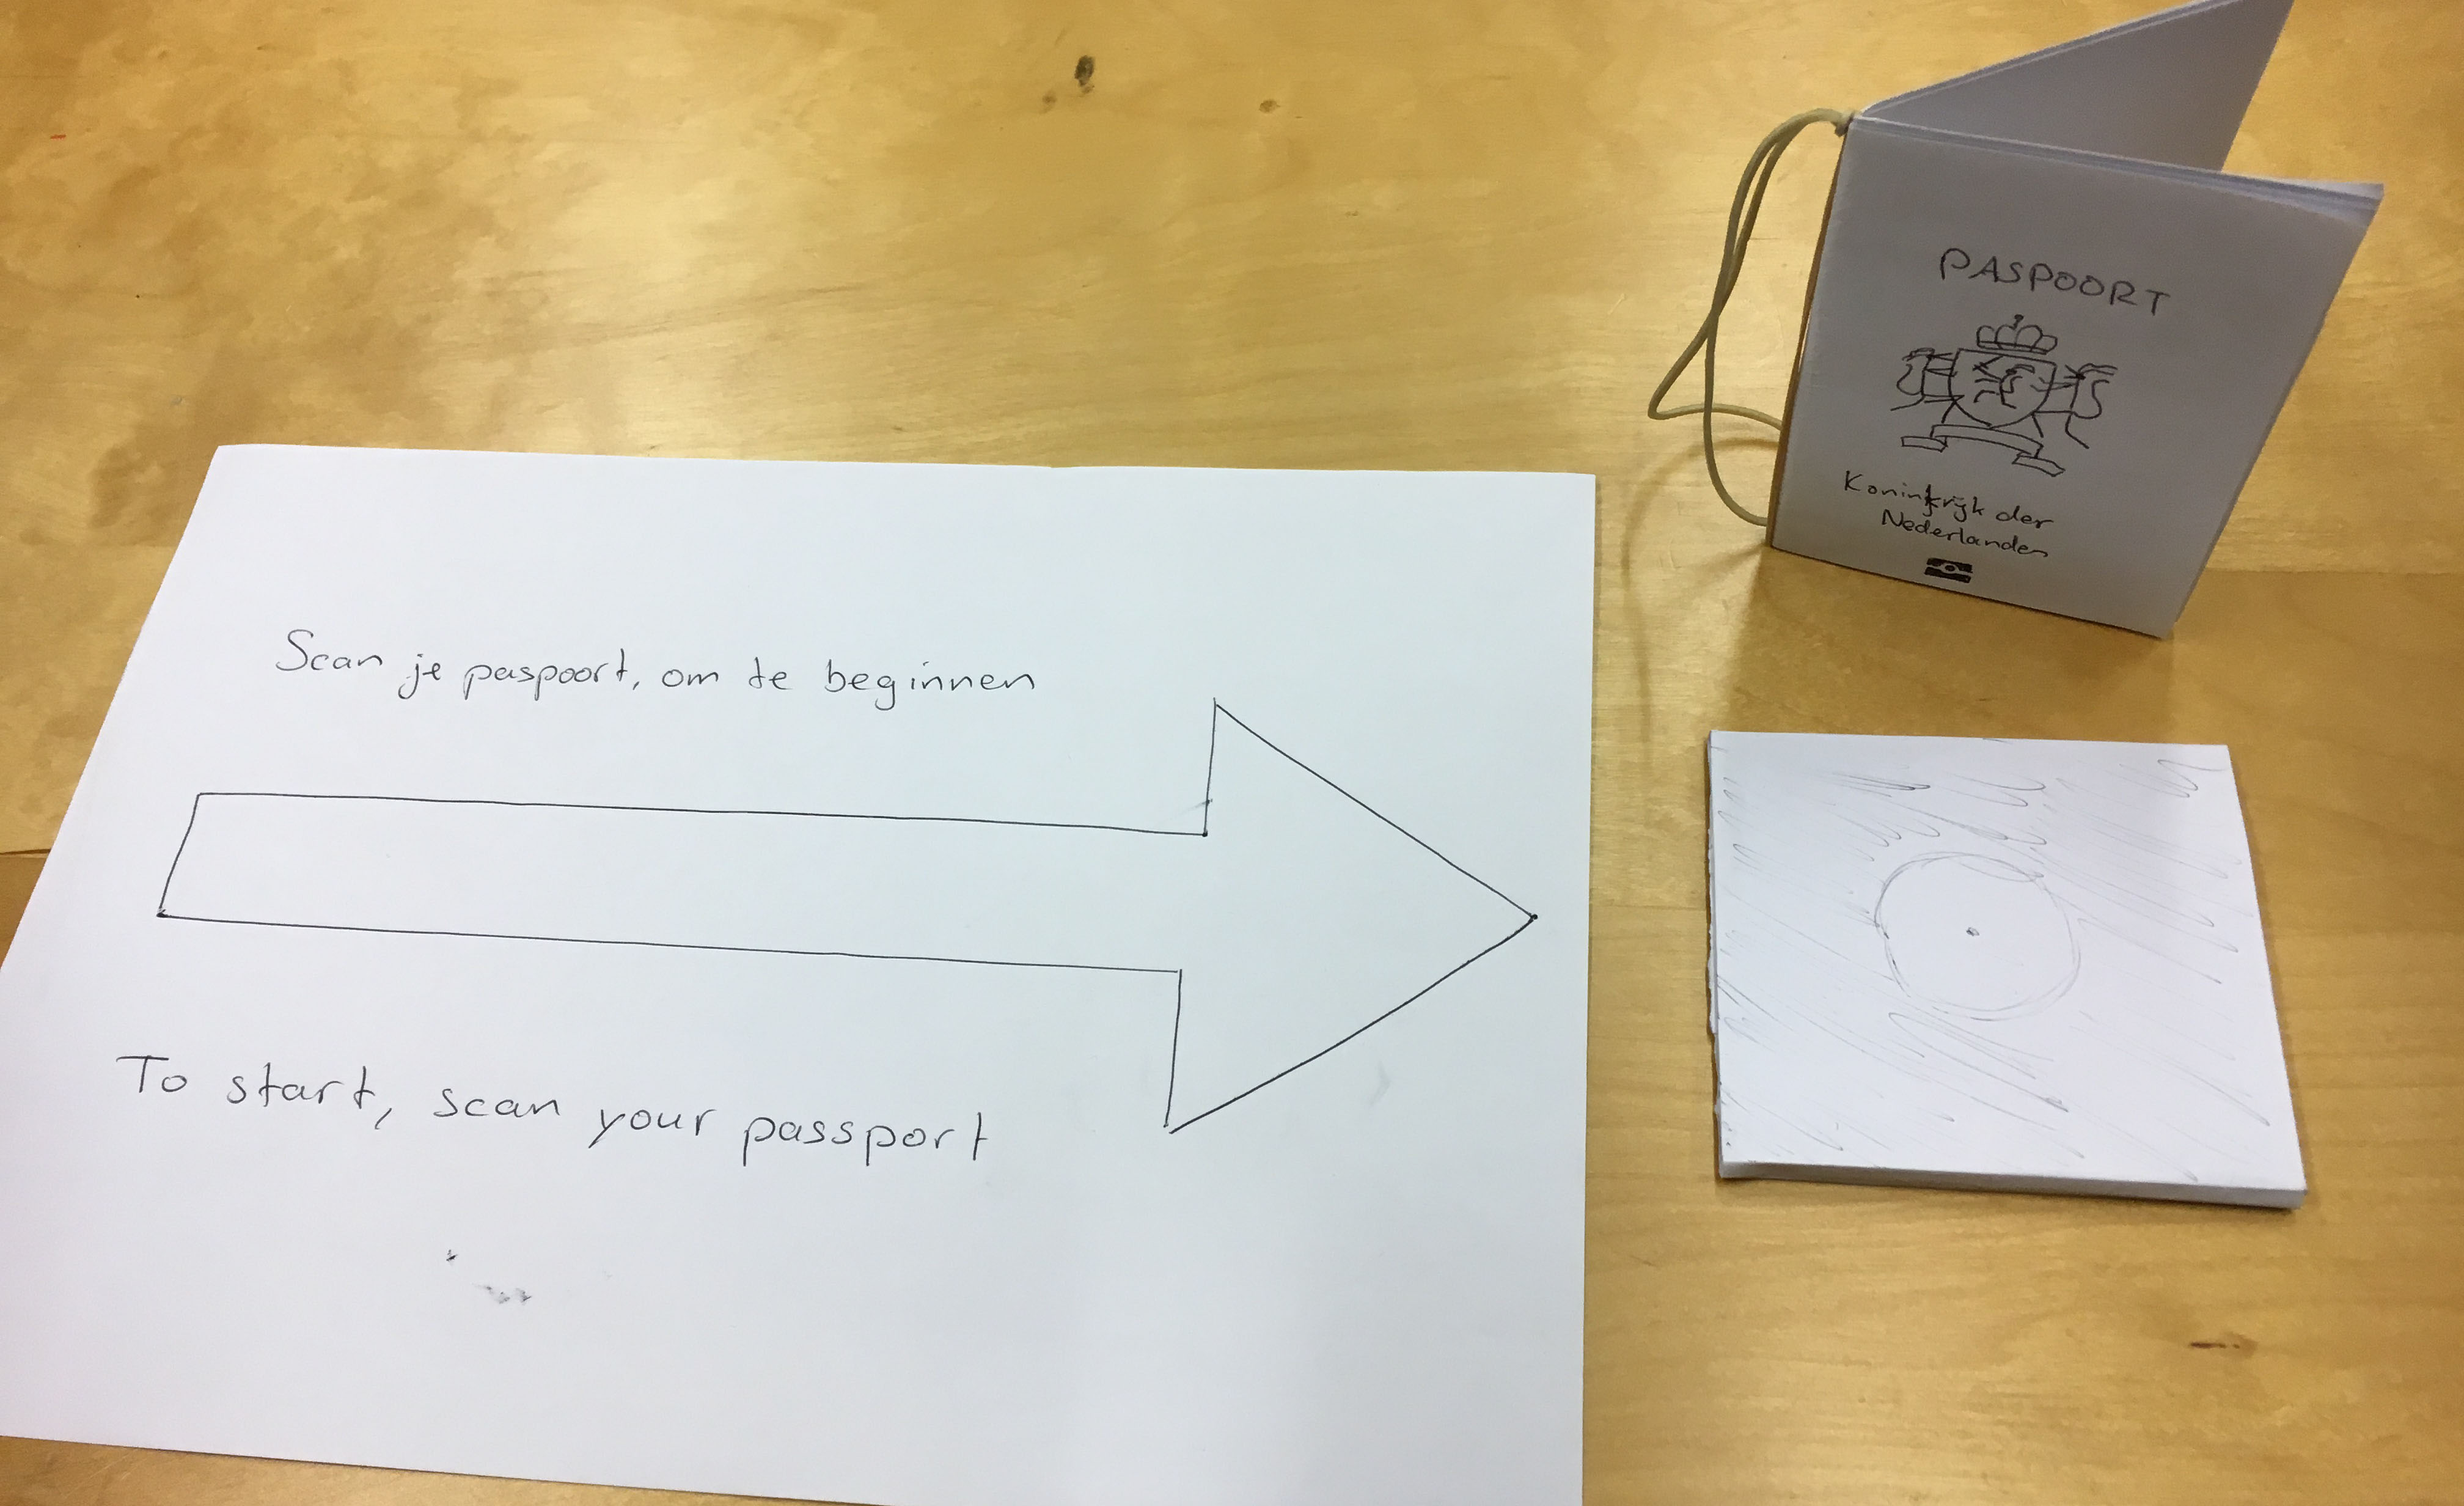 Scan je paspoort, om te beginnen
To start, scan your passport
PASPOORT
Koninkrijk der
Nederlanden